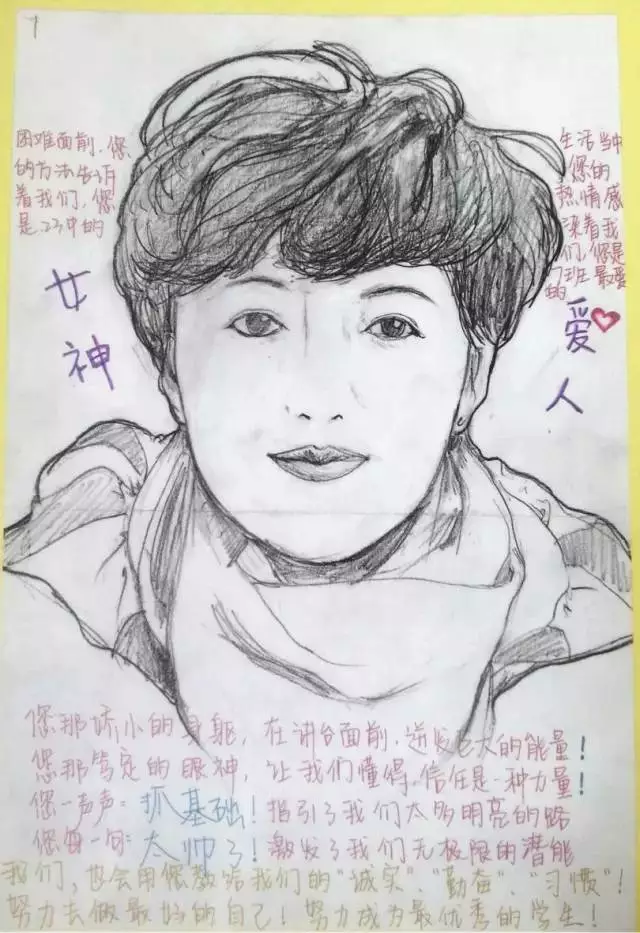 1
困难面前,您
的方法告诉
着我们,您
是23中的
女
神
生活当中
您的
热情感
染着我
们,您是
7班最爱
的
爱
人
您那娇小的身躯,在讲台面前,迸发巨大的能量!
您那笃定的眼神,让我们懂得,信任是一种力量!
您一声声:抓基础!指引了我们太多明亮的路
您每一句:太帅了!激发了我们无极限的潜能
我们,也会用您教给我们的“诚实”、“勤奋”、“习惯”!
努力去做最好的自己!努力成为最优秀的学生!